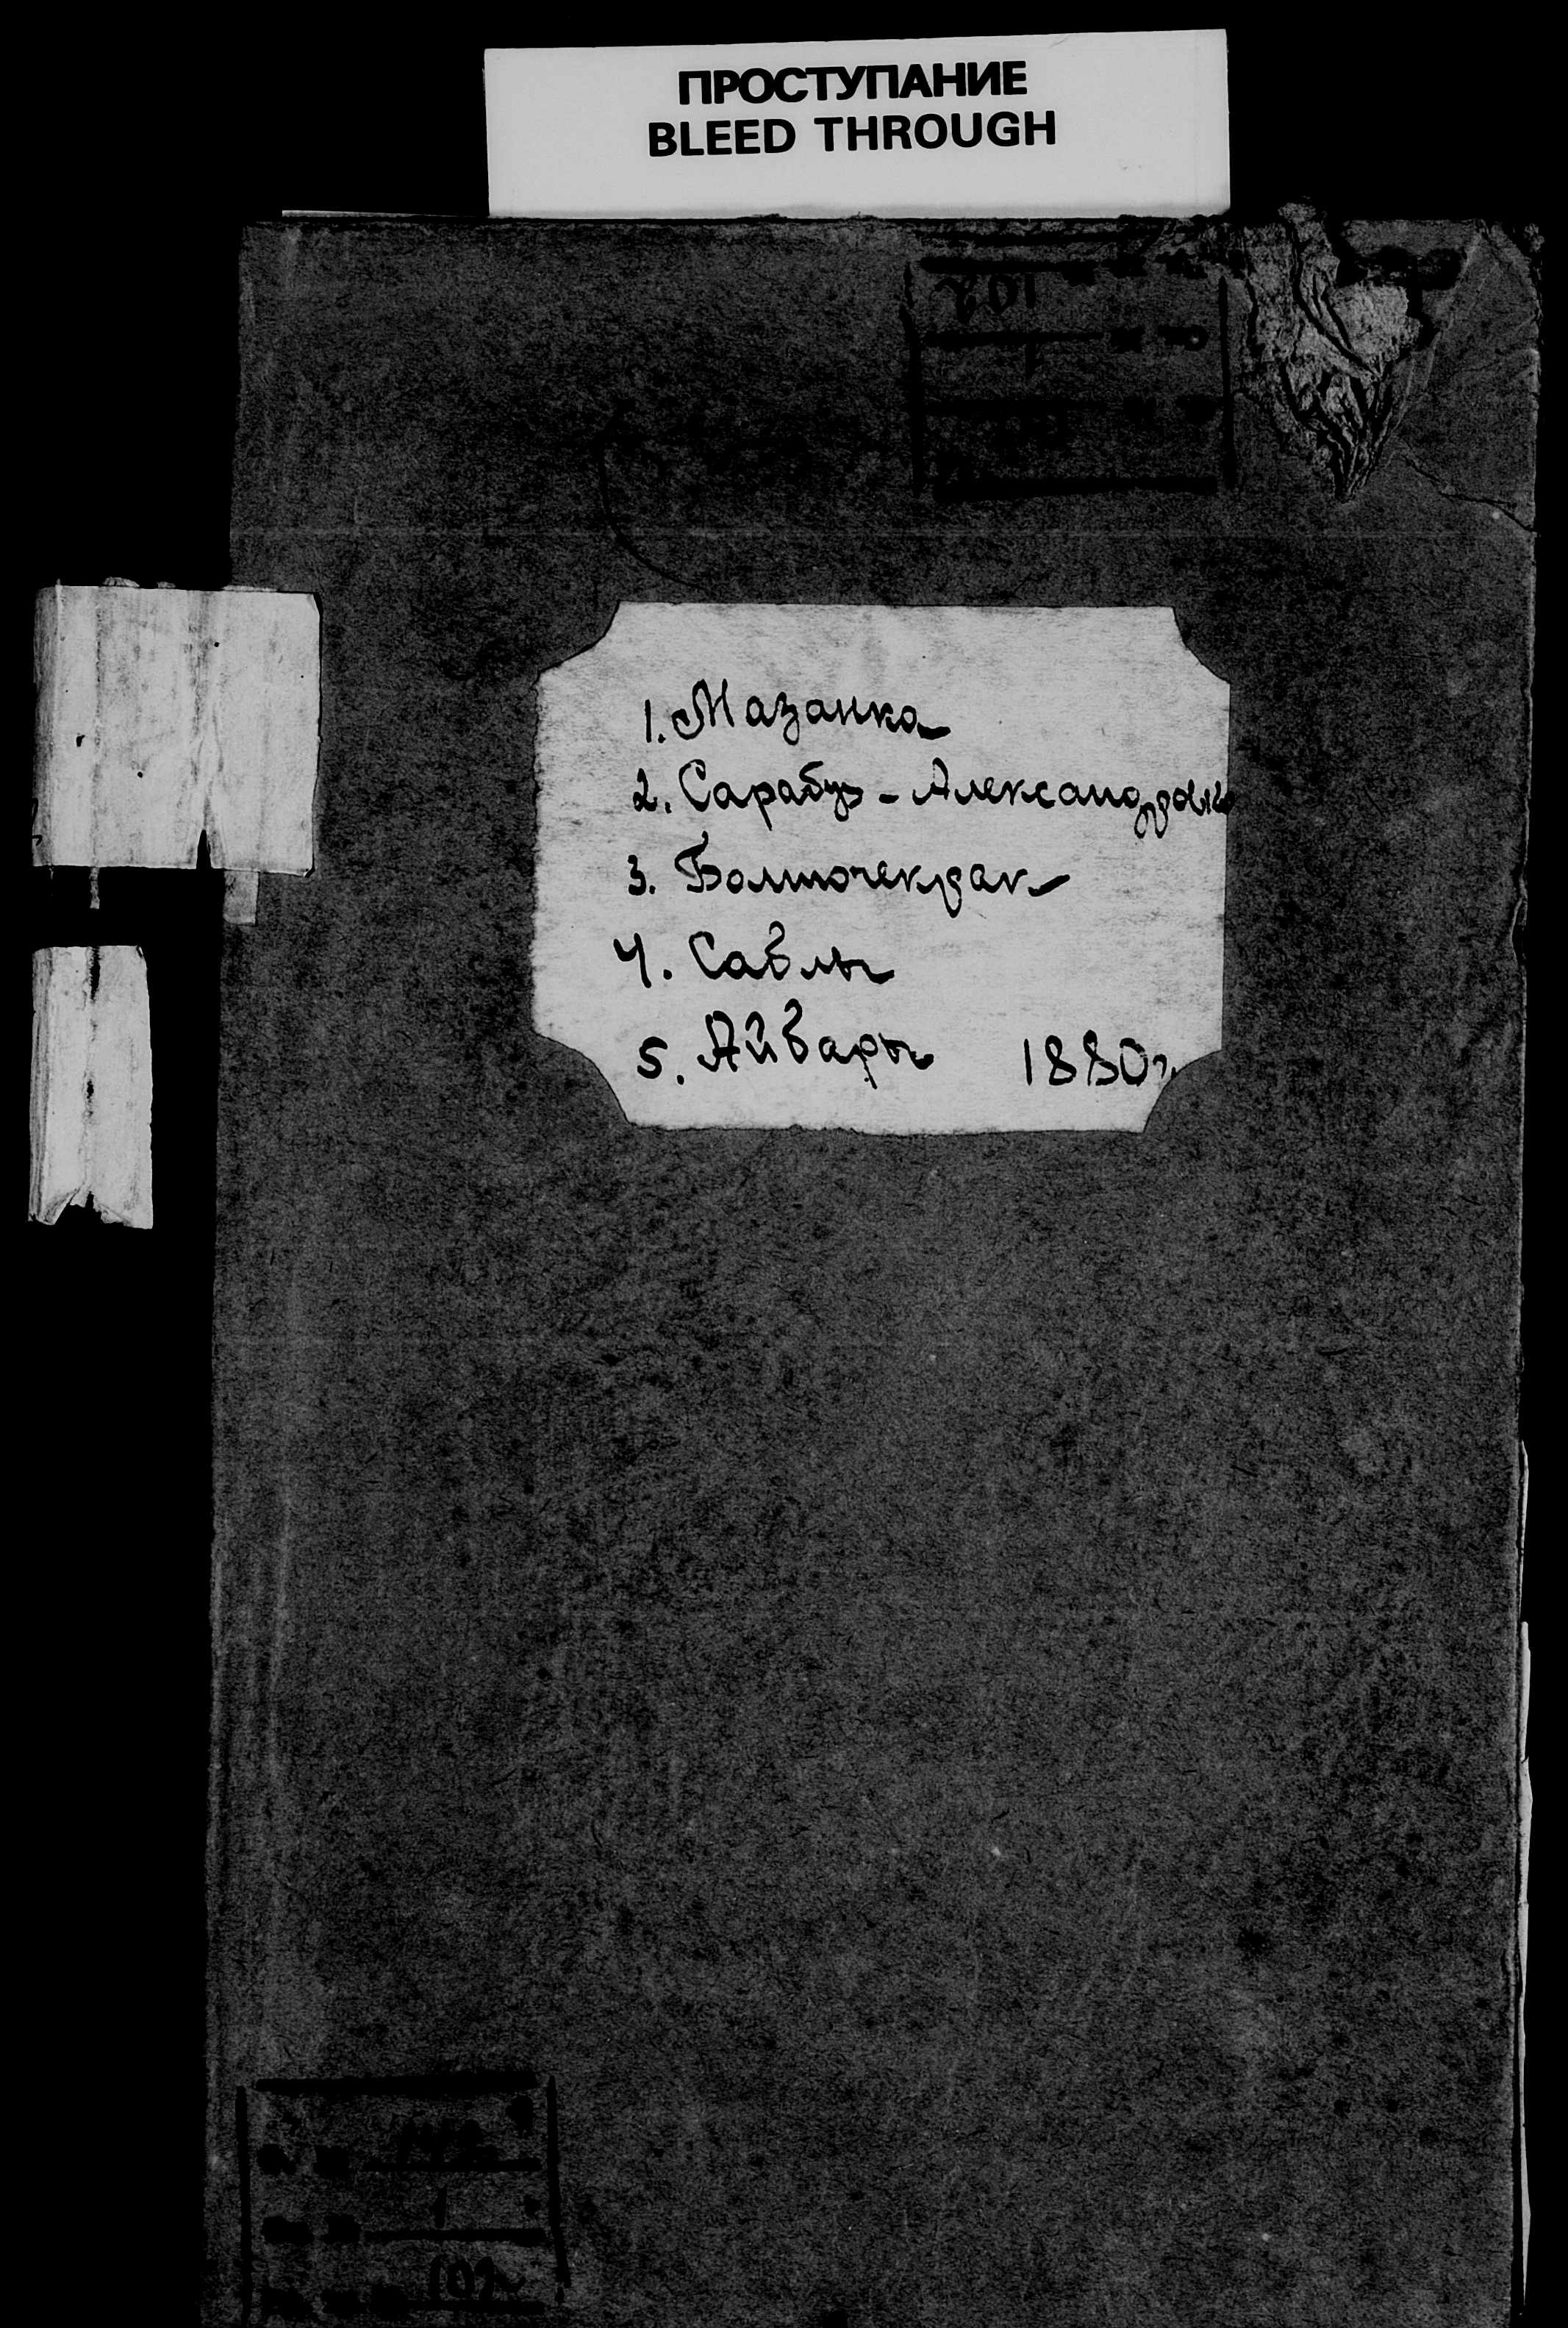 ПРОСТУПАНИЕ
BLEED THROUGH
1. Мазанка
2. Сарабуз - Александровка
3. Болточекрак
4. Саблы
5. Айвары 1880г.
102